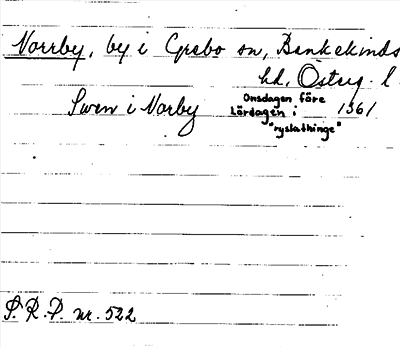 Norrby, by i Grebo sn, Bankekinds
hd, Österg. l.
Swen i Norby Onsdagen före 1361
Lördagen i
"ryslathinge"
S. R. P. nr. 522